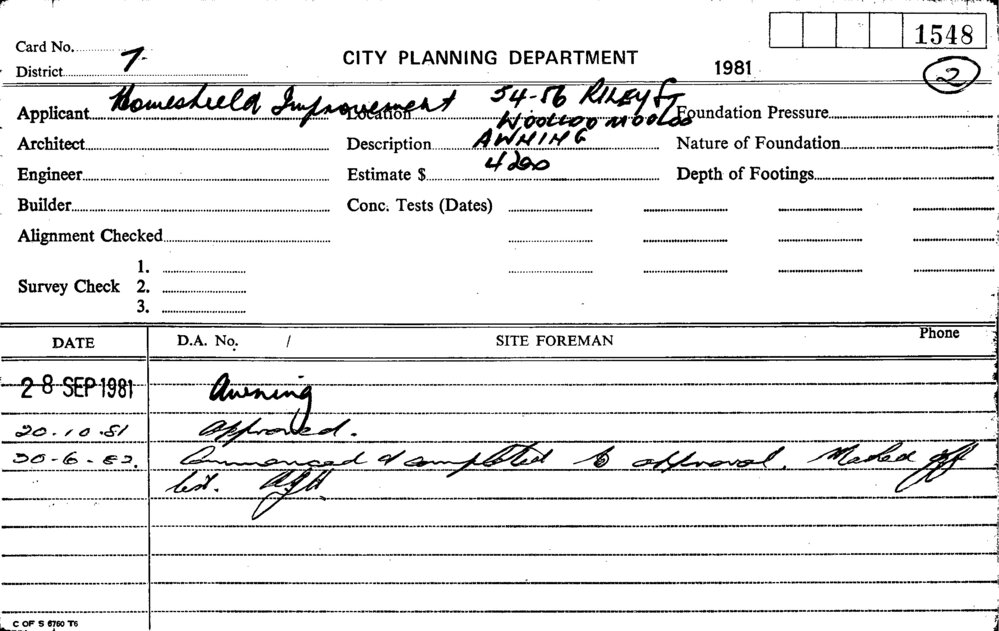 1548
Card No. 7.
CITY PLANNING DEPARTMENT
District
1981
2
Applicant Homeshield Improvement Location 54-56 RILEY ST Foundation Pressure
WOOLLOOMOOLOO
Architect Description AWNING Nature of Foundation
Engineer Estimate $ 4200 Depth of Footings
Builder Conc. Tests (Dates)
Alignment Checked
1.
Survey Check 2.
3.
DATE D.A. No. / SITE FOREMAN Phone
28 SEP 1981 Awning
20.10.81 Approved.
Commenced & completed to approval. Marked off
list.
C OF S 6760 T6